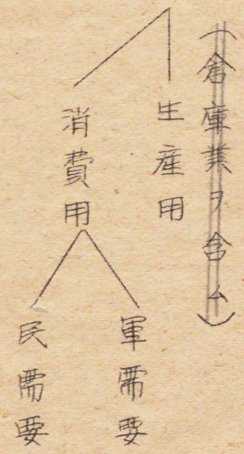 (倉庫業ヲ含ム)
生産用
消費用
軍需要
民需要